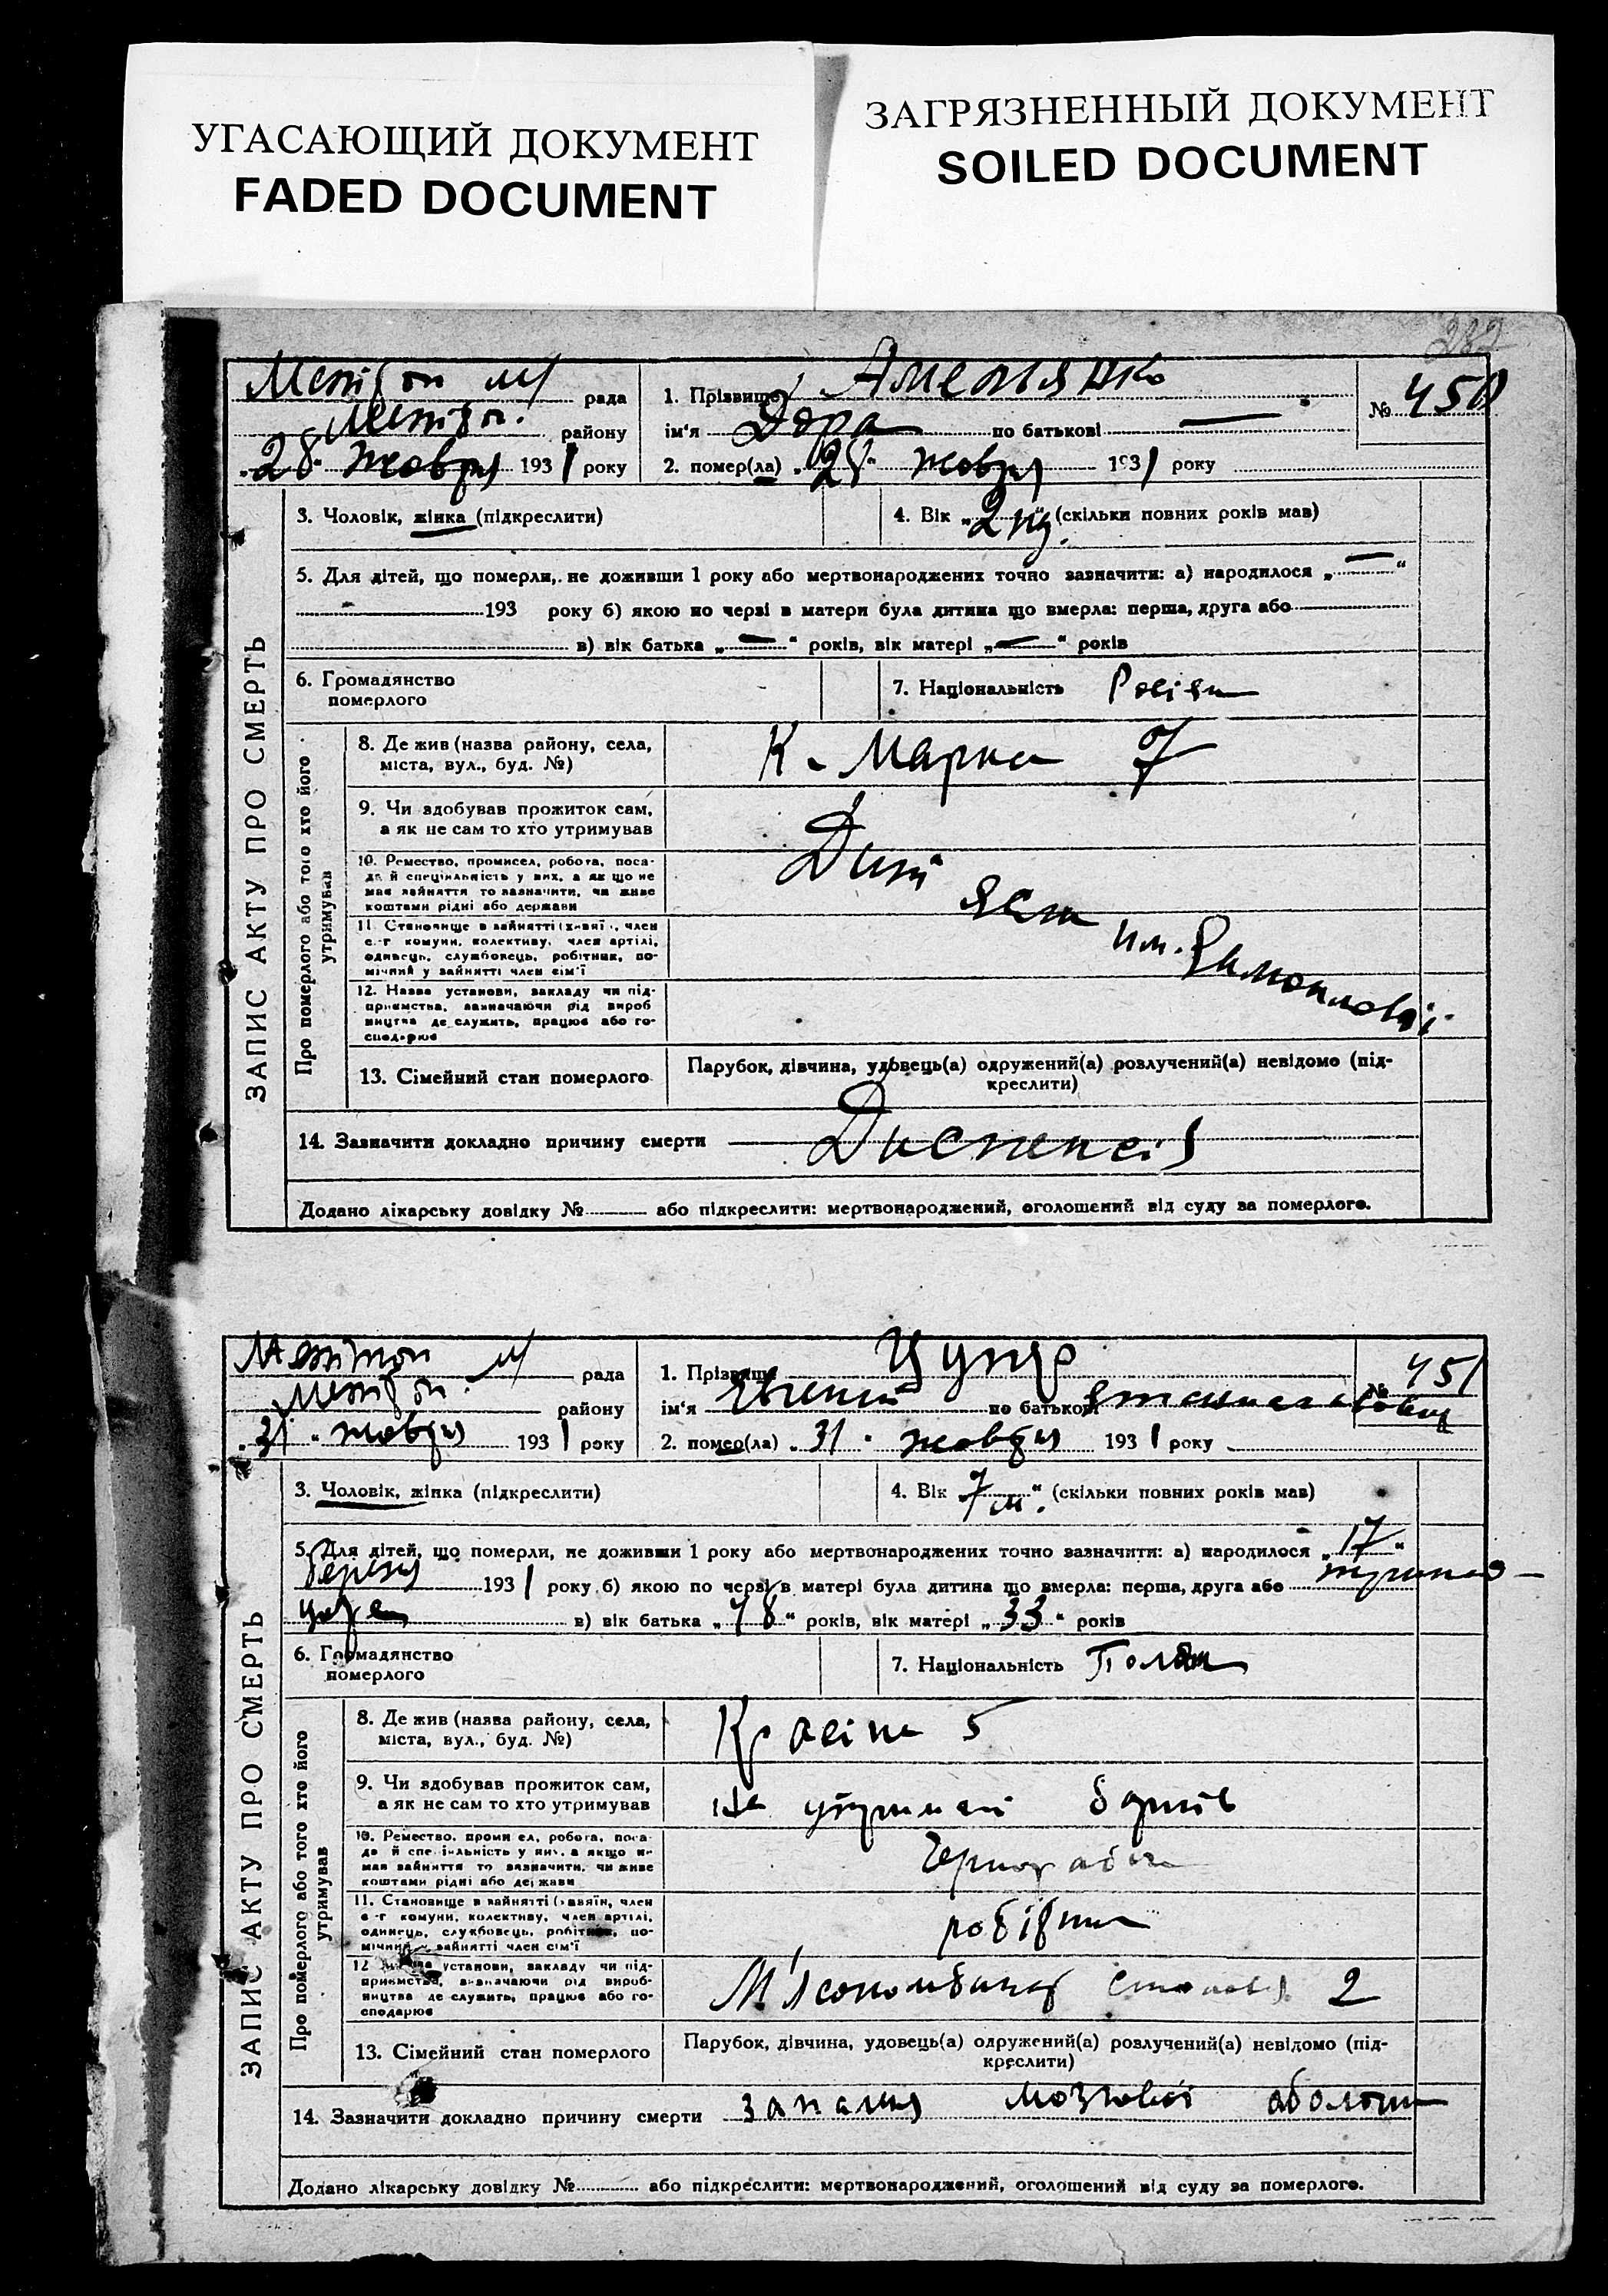 УГАСАЮЩИЙ ДОКУМЕНТ
FADED DOCUMENT
ЗАГРЯЗНЕННЫЙ ДОКУМЕНТ
SOILED DOCUMENT
282
ЗАПИС АКТУ ПРО СМЕРТЬ
рада
району
„28" жовтня 1931 року
1. Прізвище
ім'я Дора по батькові —
№ 450
2. помер(ла) „28" жовтня 1931 року
3. Чоловік, жінка (підкреслити)
4. Вік „2 (скільки повних років мав)
5. Для дітей, що померли, не доживши 1 року або мертвонароджених точно зазначити: а) народилося „—"
193 року б) якою по черзі в матери була дитина що вмерла: перша, друга або
в) вік батька „—" років, вік матері „—" років
6. Громадянство
померлого
7. Національність
Про померлого або того хто його
утримував
8. Де жив (назва району, села,
міста, вул., буд. №)
К. Маркса 7
9. Чи здобував прожиток сам,
а як не сам то хто утримував
10. Ремество, промисел, робота, поса-
да й спеціяльність у них, а як що не
мав зайняття то зазначити, чи живе
коштами рідні або держави
11. Становище в зайнятті (хазяїн, член
с.-г комуни, колективу, член артілі,
одинець, службовець, робітник, по-
мічний у зайнятті член сім'ї
12. Назва установи, закладу чи під-
приємства, зазначаючи рід вироб
ництва де служить, працює або го-
сподарює
13. Сімейний стан померлого
Парубок, дівчина, удовець(а) одружений(а) розлучений(а) невідомо (під-
креслити)
14. Зазначити докладно причину смерти
Додано лікарську довідку № або підкреслити: мертвонароджений, оголошений від суду за померлого.
ЗАПИС АКТУ ПРО СМЕРТЬ
рада
району
„31" жовтня 1931 року
1. Прізвище
ім'я Євгеній по батькові
№ 451
2. помер(ла) „31" жовтня 1931 року
3. Чоловік, жінка (підкреслити)
4. Вік „7 м." (скільки повних років мав)
5. Для дітей, що померли, не доживши 1 року або мертвонароджених точно зазначити: а) народилося „17"
березня 1931 року б) якою по черзі в матері була дитина що вмерла: перша, друга або
в) вік батька „48" років, вік матері „33" років
6. Громадянство
померлого
7. Національність Поляк
Про померлого або того хто його
утримував
8. Де жив (назва району, села,
міста, вул., буд. №)
Красіна 5
9. Чи здобував прожиток сам,
а як не сам то хто утримував
На утриманні батьків
10. Ремество, промисел, робота, поса-
да й спеціяльність у них, а якщо не
мав зайняття то зазначити, чи живе
коштами рідні або держави
11. Становище в зайнятті (хазяїн, член
с.-г комуни, колективу, член артілі,
одинець, службовець, робітник, по-
мічний у зайнятті член сім'ї
робітник
12. Назва установи, закладу чи під-
приємства, зазначаючи рід вироб-
ництва де служить, працює або го-
сподарює
М'ясокомбинат 2
13. Сімейний стан померлого
Парубок, дівчина, удовець(а) одружений(а) розлучений(а) невідомо (під-
креслити)
14. Зазначити докладно причину смерти запалення мозкової оболочки
Додано лікарську довідку № або підкреслити: мертвонароджений, оголошений від суду за померлого.